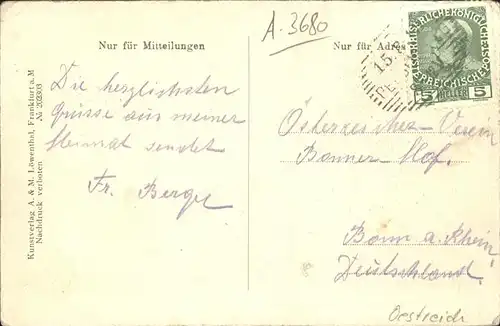 A. 3680
Nur für Mitteilungen
Nur für Adres
KAISERLICHEKÖNIGLICHE
ÖSTERREICHISCHE POST
5 HELLER 5
15.
Die herzlichsten
Grüsse aus meiner
Heimat sendet
Fr. Berger
Österreicher-Verein
Bonner Hof.
Bonn a. Rhein
Deutschland.
Oestreich
Kunstverlag A. & M. Löwenthal, Frankfurt a. M
Nachdruck verboten
№ 202303